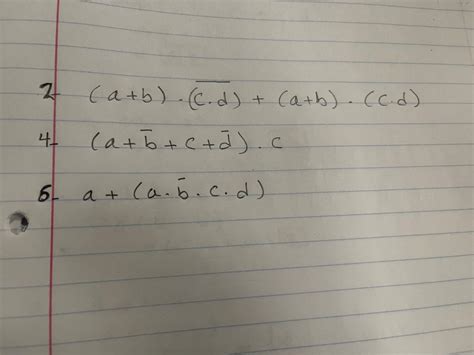 2- (a+b) . (c̅.̅d̅) + (a+b) . (c.d)
4- (a + b̅ + c + d̅) . c
6- a + (a. b̅. c. d)